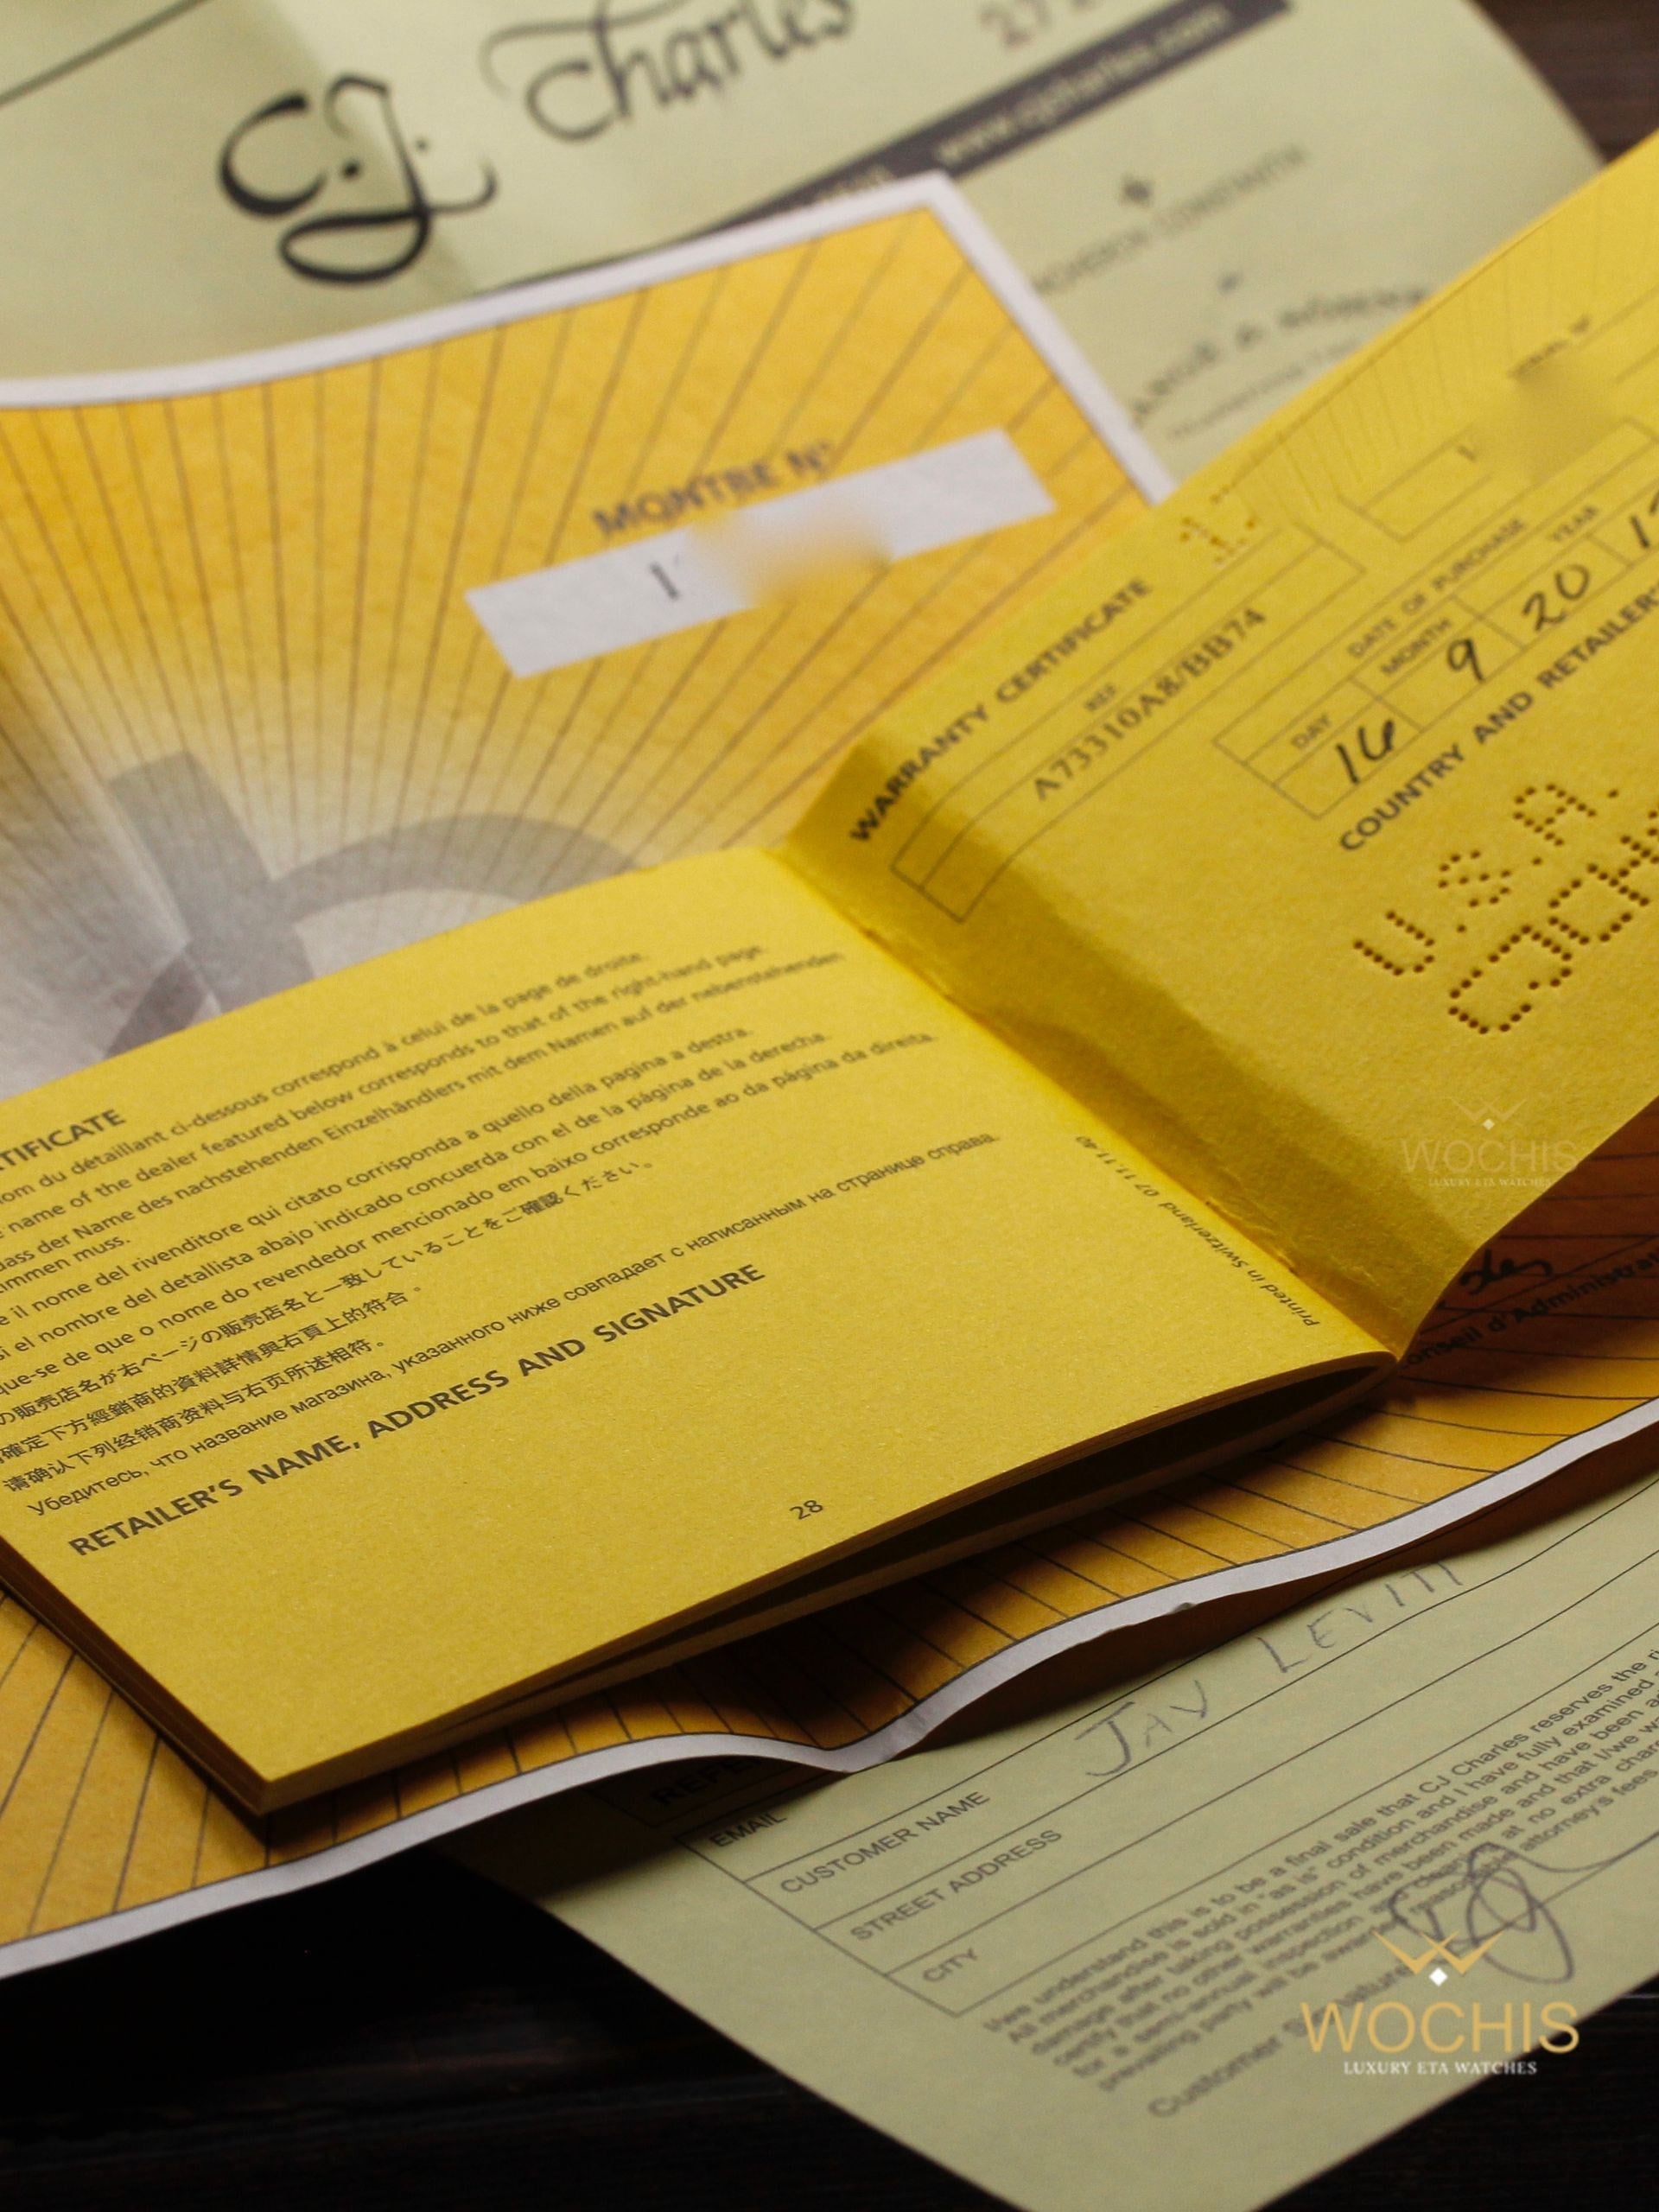 C.J. Charles
www.cjcharles.com
MONTRE N°
WARRANTY CERTIFICATE
REF.
A73310A8/BB74
DATE OF PURCHASE
DAY MONTH YEAR
16 9 20
COUNTRY AND RETAILER'
U.S.A.
CJCH
TIFICATE
nom du détaillant ci-dessous correspond à celui de la page de droite.
name of the dealer featured below corresponds to that of the right-hand page.
dass der Name des nachstehenden Einzelhändlers mit dem Namen auf der nebenstehenden
immen muss.
e il nome del rivenditore qui citato corrisponda a quello della pagina a destra.
si el nombre del detallista abajo indicado concuerda con el de la página de la derecha.
que-se de que o nome do revendedor mencionado em baixo corresponde ao da página da direita.
の販売店名が右ページの販売店名と一致していることをご確認ください。
確定下方經銷商的資料詳情與右頁上的符合。
请确认下列经销商资料与右页所述相符。
Убедитесь, что название магазина, указанного ниже совпадает с написанным на странице справа.
RETAILER'S NAME, ADDRESS AND SIGNATURE
28
Printed in Switzerland 07.11.11.40
Conseil d'Administrat
REFE
EMAIL
CUSTOMER NAME JAY LEVITT
STREET ADDRESS
CITY
I/we understand this is to be a final sale that CJ Charles reserves the ri
All merchandise is sold in "as is" condition and I have fully examined
damage after taking possession of merchandise and have been ad
certify that no other warranties have been made and that I/we wa
for a semi-annual inspection and cleaning at no extra char
prevailing party will be awarded reasonable attorney's fees
Customer Signature
WOCHIS
LUXURY ETA WATCHES
WOCHIS
LUXURY ETA WATCHES